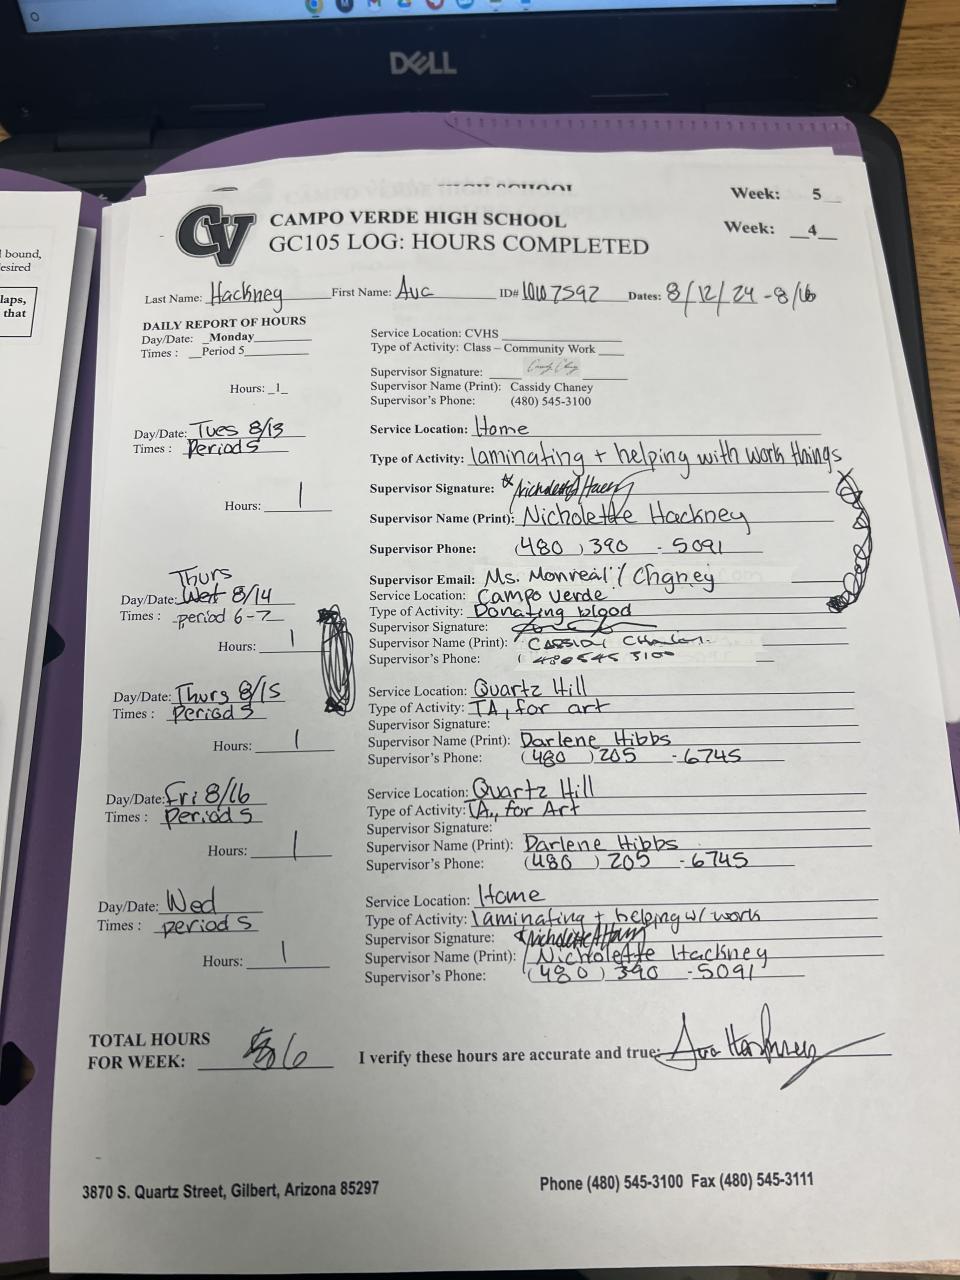 DELL
l bound,
esired
laps,
that
HIGH SCHOOL
Week: 5
CV
CAMPO VERDE HIGH SCHOOL
Week: 4
GC105 LOG: HOURS COMPLETED
Last Name: Hackney First Name: Ava ID# 10107592 Dates: 8/12/24 - 8/16
DAILY REPORT OF HOURS
Day/Date: Monday
Times : Period 5
Hours: 1
Service Location: CVHS
Type of Activity: Class – Community Work
Supervisor Signature:
Supervisor Name (Print): Cassidy Chaney
Supervisor's Phone: (480) 545-3100
Day/Date: Tues 8/13
Times : Period 5
Hours: 1
Service Location: Home
Type of Activity: laminating + helping with work things
Supervisor Signature: Nicholette Hackney
Supervisor Name (Print): Nicholette Hackney
Supervisor Phone: (480) 390 - 5091
Supervisor Email: Ms. Monreal / Chaney
Thurs
Day/Date: Wed 8/14
Times : period 6-7
Hours: 1
Service Location: Campo verde
Type of Activity: Donating blood
Supervisor Signature:
Supervisor Name (Print): Cassidy
Supervisor's Phone: ( 480 545 3100
Day/Date: Thurs 8/15
Times : Period 5
Hours: 1
Service Location: Quartz Hill
Type of Activity: TA, for art
Supervisor Signature:
Supervisor Name (Print): Darlene Hibbs
Supervisor's Phone: (480) 205 - 6745
Day/Date: Fri 8/16
Times : Period 5
Hours: 1
Service Location: Quartz Hill
Type of Activity: TA, for Art
Supervisor Signature:
Supervisor Name (Print): Darlene Hibbs
Supervisor's Phone: (480) 205 - 6745
Day/Date: Wed
Times : period 5
Hours: 1
Service Location: Home
Type of Activity: laminating + helping w/ work
Supervisor Signature: Nicholette Hackney
Supervisor Name (Print): Nicholette Hackney
Supervisor's Phone: (480) 390 - 5091
TOTAL HOURS
FOR WEEK: 6
I verify these hours are accurate and true: Ava Hackney
3870 S. Quartz Street, Gilbert, Arizona 85297
Phone (480) 545-3100 Fax (480) 545-3111